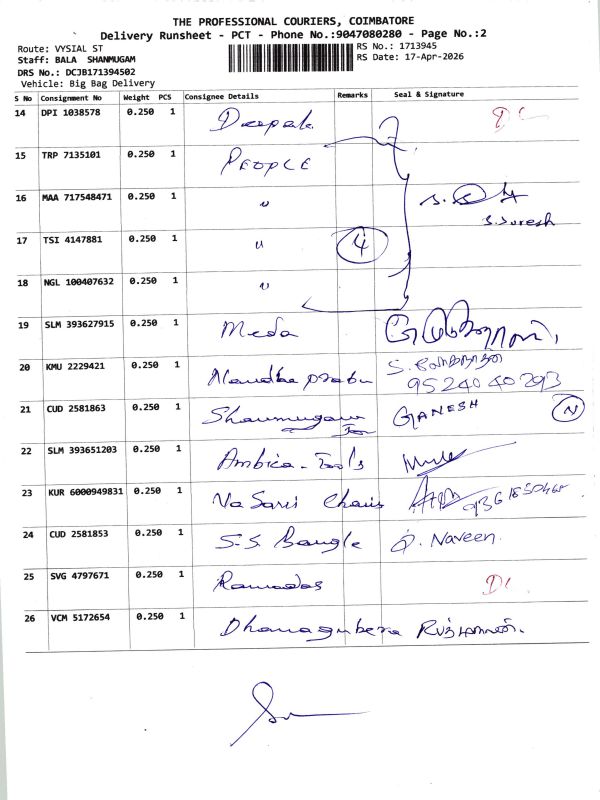 THE PROFESSIONAL COURIERS, COIMBATORE
Delivery Runsheet - PCT - Phone No.:9047080280 - Page No.:2
Route: VYSIAL ST
RS No.: 1713945
Staff: BALA SHANMUGAM
RS Date: 17-Apr-2026
DRS No.: DCJB171394502
Vehicle: Big Bag Delivery
S No Consignment No Weight PCS Consignee Details Remarks Seal & Signature
14 DPI 1038578 0.250 1 Deepak
15 TRP 7135101 0.250 1 PEOPLE
16 MAA 717548471 0.250 1 "
S. Suresh
17 TSI 4147881 0.250 1 " 4
18 NGL 100407632 0.250 1 "
19 SLM 393627915 0.250 1 Meda
20 KMU 2229421 0.250 1 Nandha prabu
95240 40293
21 CUD 2581863 0.250 1 Shanmugam GANESH N
22 SLM 393651203 0.250 1 Ambica
23 KUR 6000949831 0.250 1
24 CUD 2581853 0.250 1 S.S. Bangle P. Naveen.
25 SVG 4797671 0.250 1 Ramadas
26 VCM 5172654 0.250 1